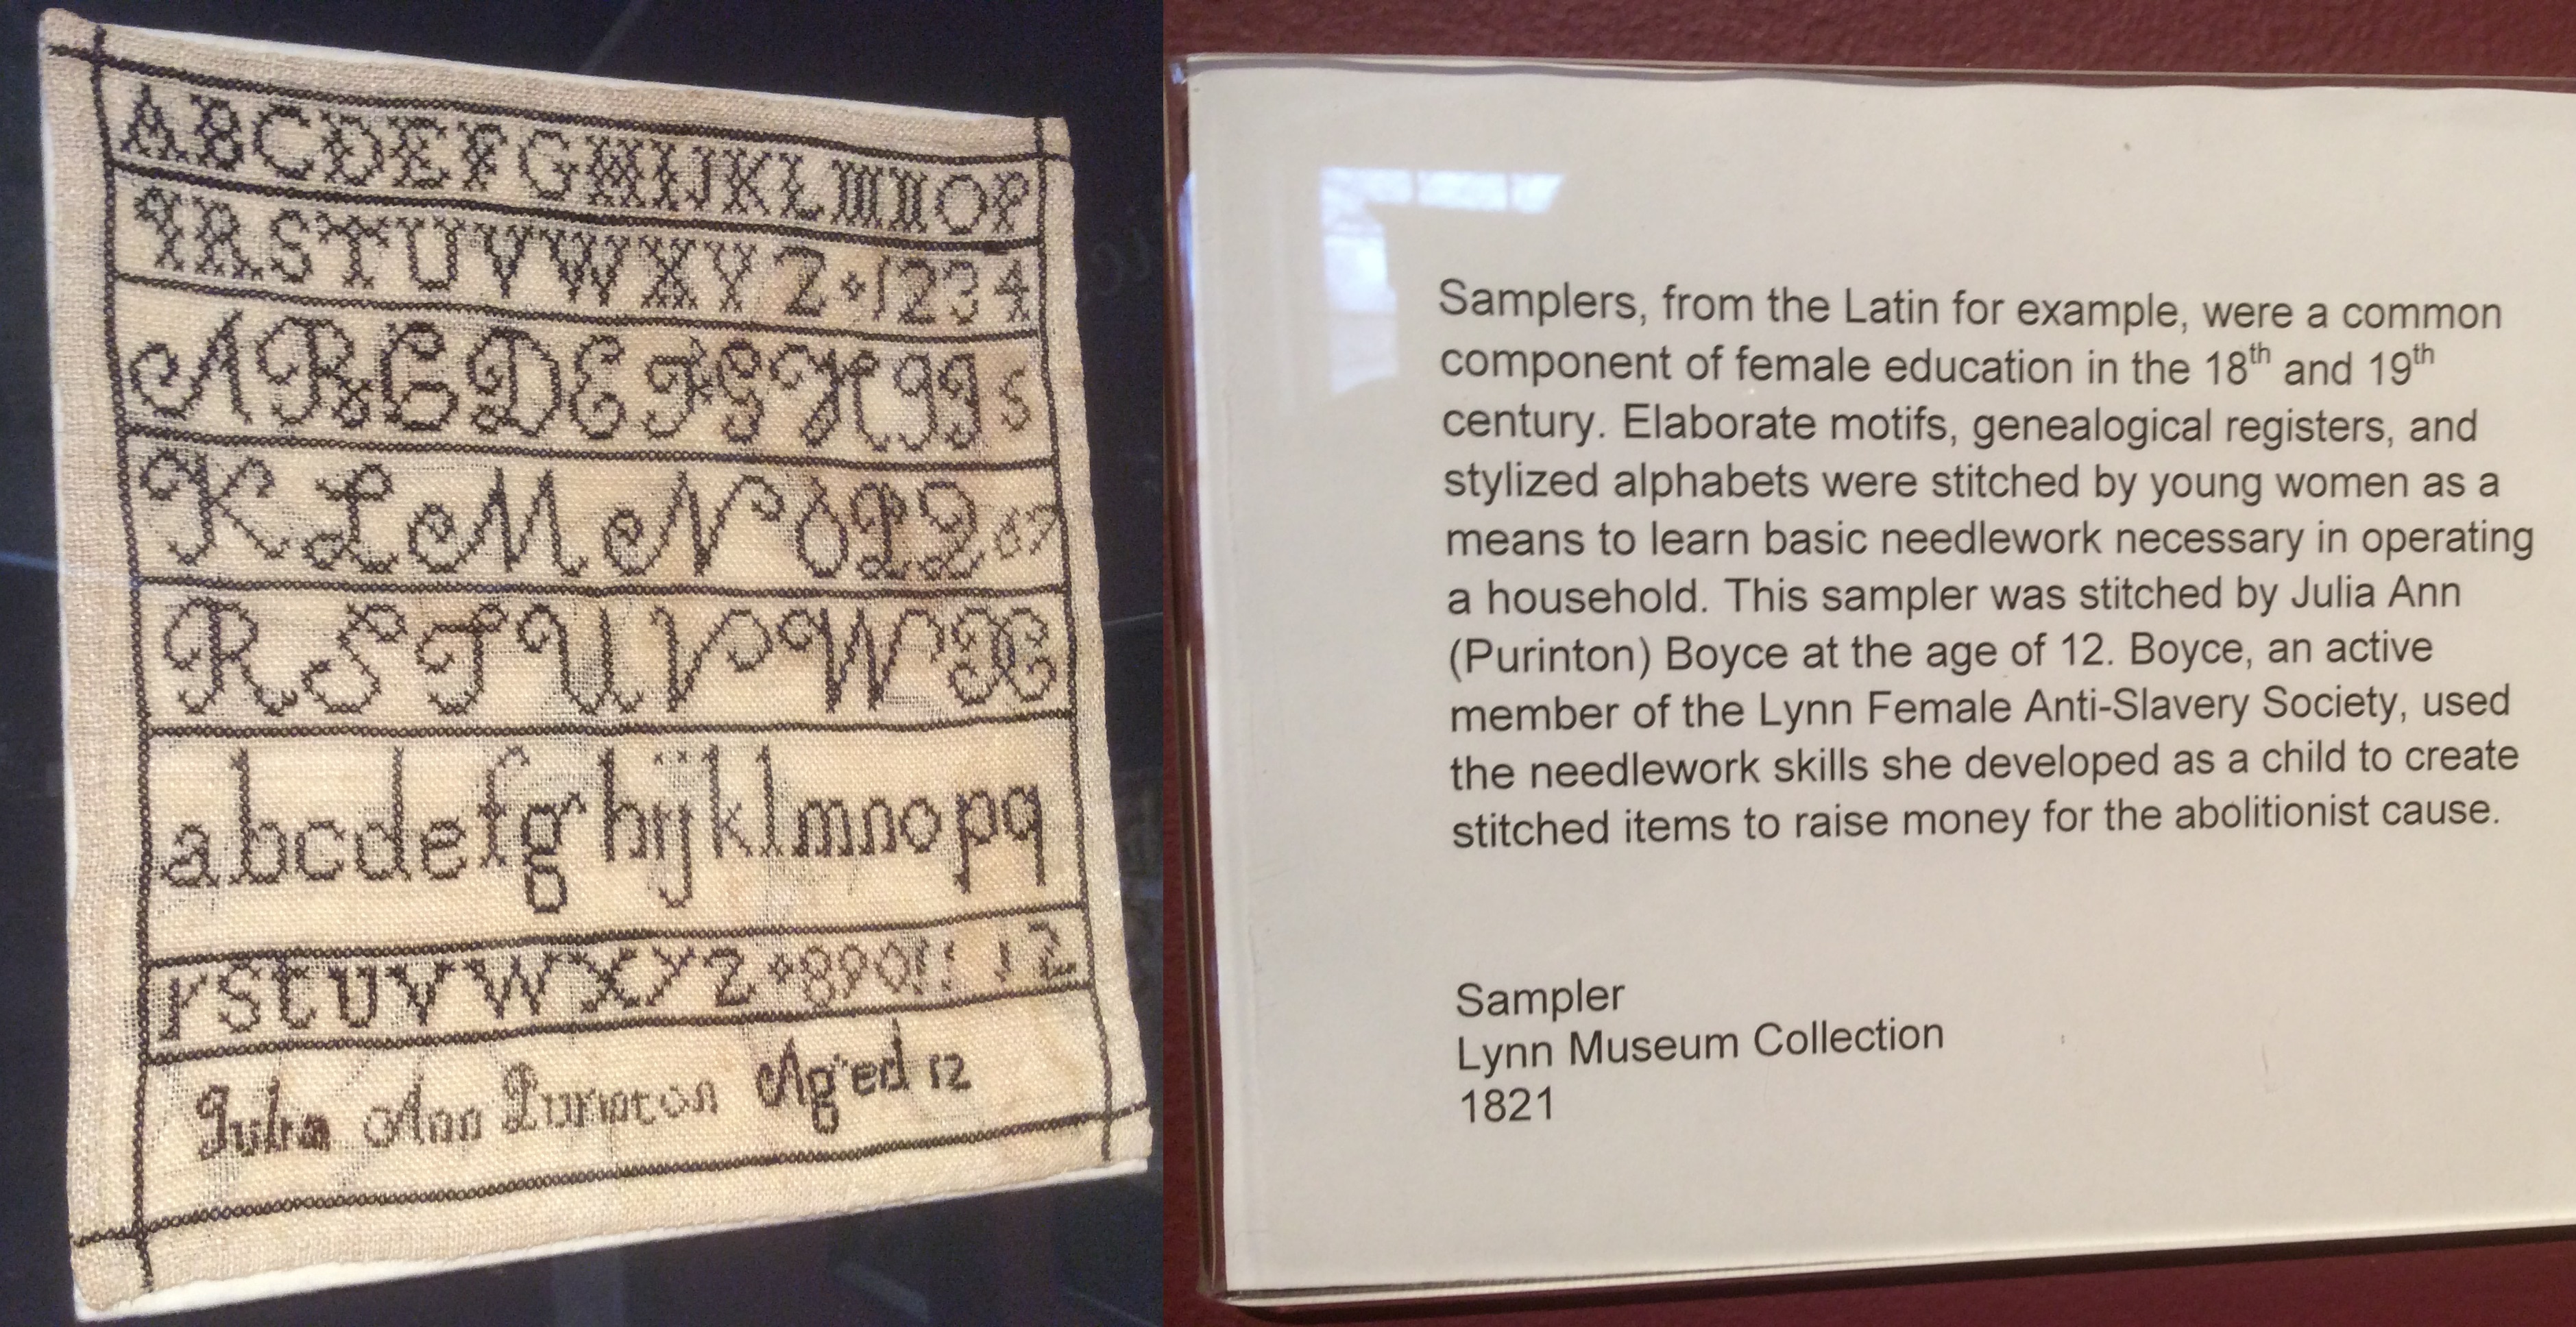 ABCDEFGHIJKLMNOP
QRSTUVWXYZ·1234
ABCDEFGHIJ5
KLMNOPQ67
RSTUVWX
abcdefghijklmnopq
rstuvwxyz·890!! 12
Julia Ann Purinton Aged 12
Samplers, from the Latin for example, were a common
component of female education in the 18th and 19th
century. Elaborate motifs, genealogical registers, and
stylized alphabets were stitched by young women as a
means to learn basic needlework necessary in operating
a household. This sampler was stitched by Julia Ann
(Purinton) Boyce at the age of 12. Boyce, an active
member of the Lynn Female Anti-Slavery Society, used
the needlework skills she developed as a child to create
stitched items to raise money for the abolitionist cause.
Sampler
Lynn Museum Collection
1821